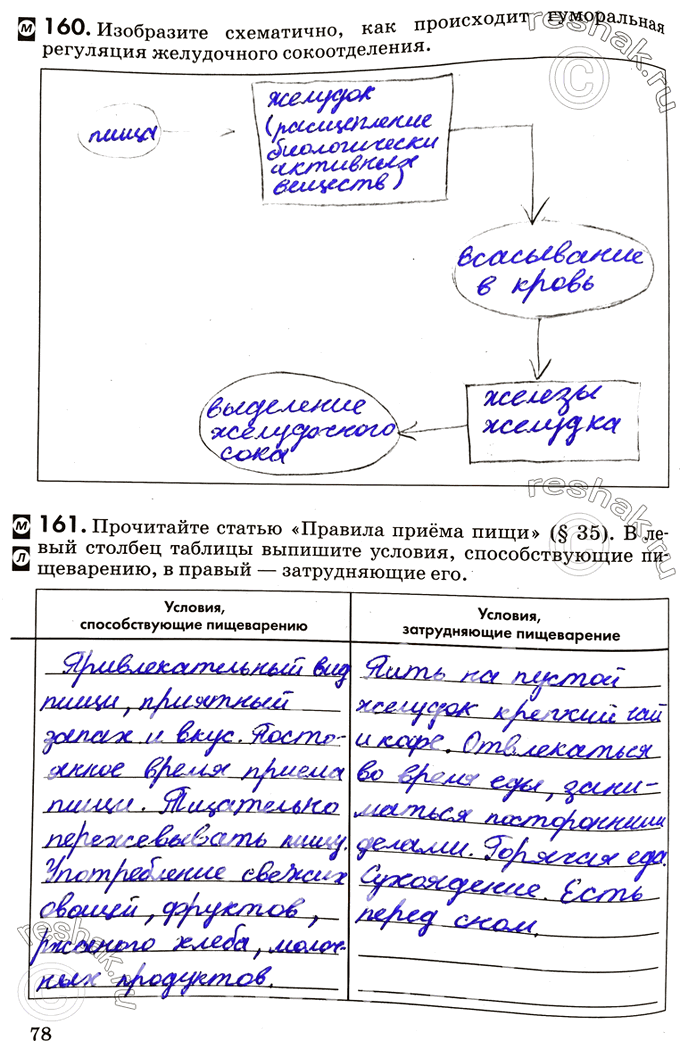 М 160. Изобразите схематично, как происходит гуморальная
регуляция желудочного сокоотделения.
reshak.ru
©
пища
желудок
(расщепление
биологически
активных
веществ)
всасывание
в кровь
железы
желудка
выделение
желудочного
сока
reshak.ru
©
М 161. Прочитайте статью «Правила приёма пищи» (§ 35). В ле-
Л вый столбец таблицы выпишите условия, способствующие пи-
щеварению, в правый — затрудняющие его.
Условия,
способствующие пищеварению
Привлекательный вид
пищи, приятный
запах и вкус. Посто-
янное время приема
пищи. Тщательно
пережевывать пищу.
Употребление свежих
овощей, фруктов,
ржаного хлеба, молоч-
ных продуктов.
Условия,
затрудняющие пищеварение
Пить на пустой
желудок крепкий чай
и кофе. Отвлекаться
во время еды, зани-
маться посторонними
делами. Горячая еда.
Сухоядение. Есть
перед сном.
reshak.ru
©
78